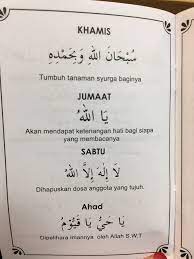 KHAMIS
سُبْحَانَ اللهِ وَبِحَمْدِهِ
Tumbuh tanaman syurga baginya
JUMAAT
يَا اَللهُ
Akan mendapat keterangan hati bagi siapa
yang membacanya
SABTU
لَا إِلَهَ إِلَّا اللهُ
Dihapuskan dosa anggota yang tujuh.
Ahad
يَا حَيُّ يَا قَيُّوْمُ
Dipelihara imannya oleh Allah S.W.T